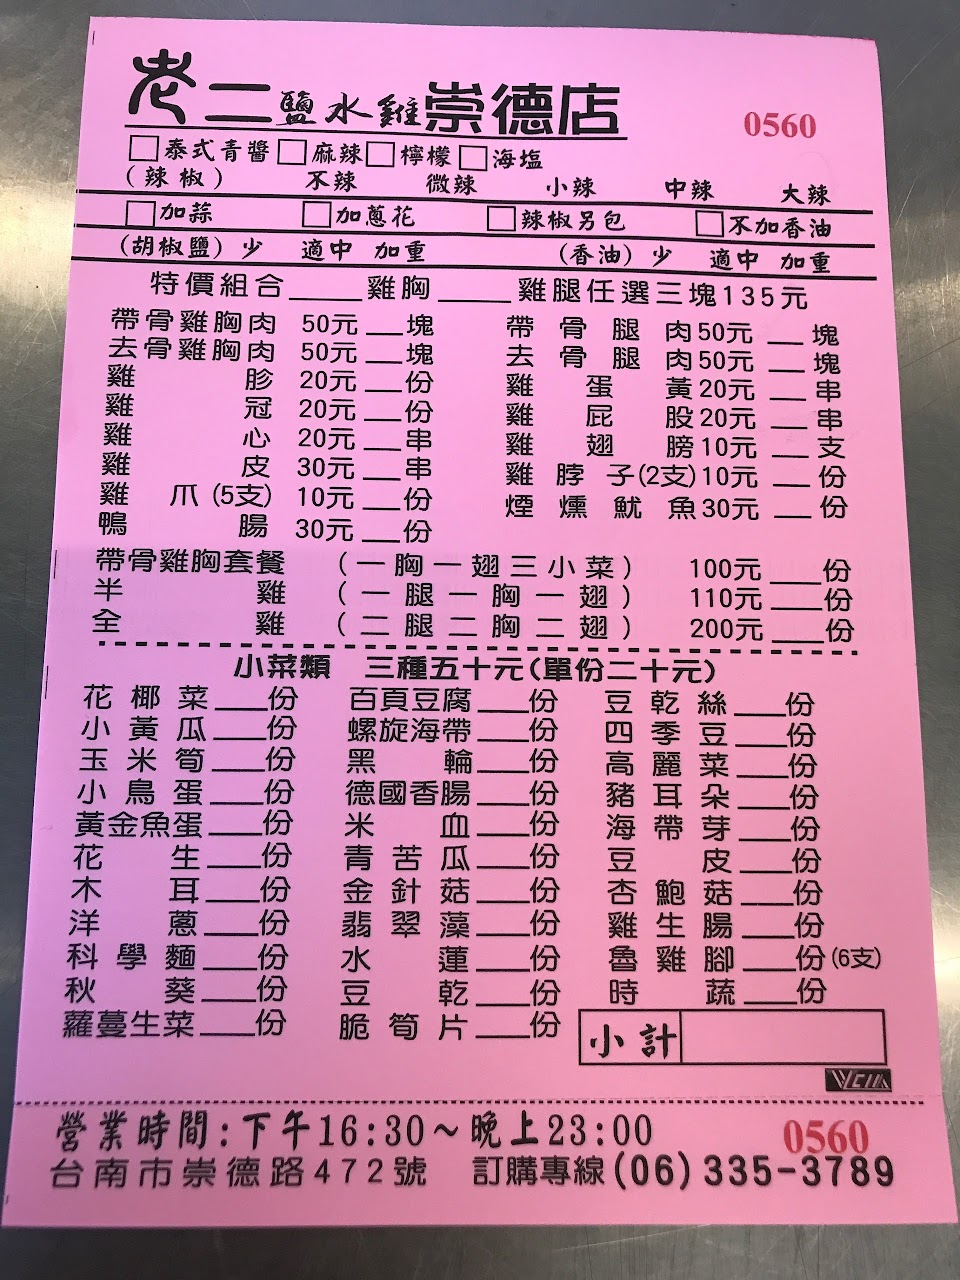 老二鹽水雞崇德店 0560
□泰式青醬□麻辣□檸檬□海塩
(辣椒) 不辣 微辣 小辣 中辣 大辣
□加蒜 □加蔥花 □辣椒另包 □不加香油
(胡椒鹽) 少 適中 加重 (香油) 少 適中 加重
特價組合____雞胸____雞腿任選三塊135元
帶骨雞胸肉 50元 __塊 帶骨腿肉50元 __ 塊
去骨雞胸肉 50元 __塊 去骨腿肉50元 __ 塊
雞胗 20元 __份 雞蛋黃20元 __ 串
雞冠 20元 __份 雞屁股20元 __ 串
雞心 20元 __串 雞翅膀10元 __ 支
雞皮 30元 __串 雞脖子(2支)10元 __ 份
雞爪(5支) 10元 __份 煙燻魷魚30元 __ 份
鴨腸 30元 __份
帶骨雞胸套餐 (一胸一翅三小菜) 100元 ___份
半雞 (一腿一胸一翅) 110元 ___份
全雞 (二腿二胸二翅) 200元 ___份
小菜類 三種五十元(單份二十元)
花椰菜___份 百頁豆腐___份 豆乾絲___份
小黃瓜___份 螺旋海帶___份 四季豆___份
玉米筍___份 黑輪___份 高麗菜___份
小鳥蛋___份 德國香腸___份 豬耳朵___份
黃金魚蛋___份 米血___份 海帶芽___份
花生___份 青苦瓜___份 豆皮___份
木耳___份 金針菇___份 杏鮑菇___份
洋蔥___份 翡翠藻___份 雞生腸___份
科學麵___份 水蓮___份 魯雞腳___份(6支)
秋葵___份 豆乾___份 時蔬___份
蘿蔓生菜___份 脆筍片___份 小計
營業時間:下午16:30～晚上23:00 0560
台南市崇德路472號 訂購專線(06)335-3789